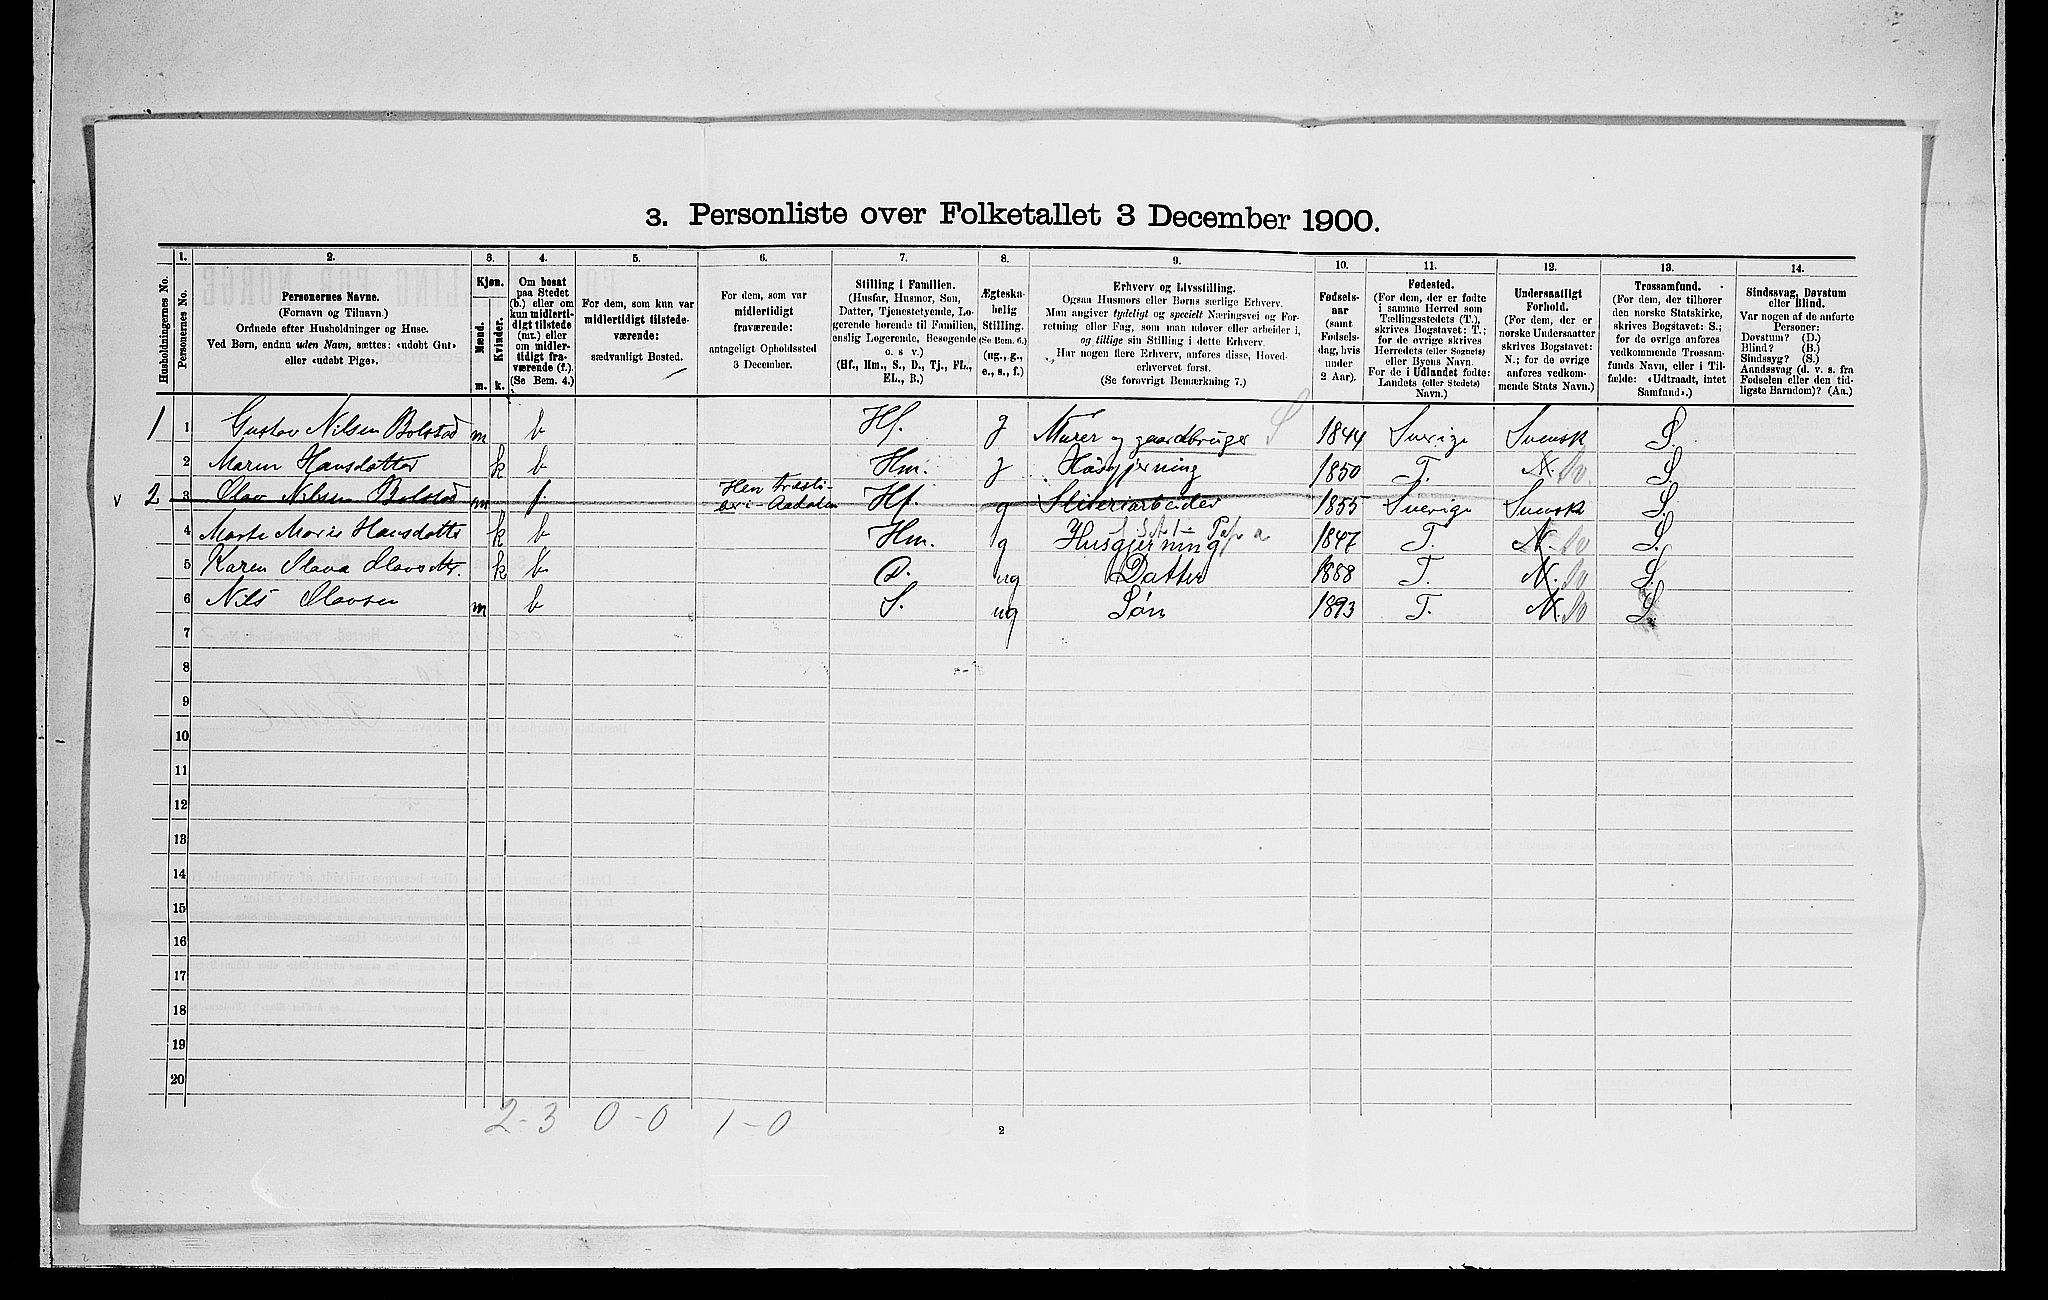 3. Personliste over Folketallet 3 December 1900.
Husholdningernes No.
1. Personernes No.
2. Personernes Navne. (Fornavn og Tilnavn.) Ordnede efter Husholdninger og Huse. Ved Børn, endnu uden Navn, sættes: «udøbt Gut» eller «udøbt Pige».
3. Kjøn. Mænd. m. Kvinder. k.
4. Om bosat paa Stedet (b.) eller om kun midlertidigt tilstede (mt.) eller om midlertidigt fraværende (f.). (Se Bem. 4.)
5. For dem, som kun var midlertidigt tilstedeværende: sædvanligt Bosted.
6. For dem, som var midlertidigt fraværende: antageligt Opholdssted 3 December.
7. Stilling i Familien. (Husfar, Husmor, Søn, Datter, Tjenestetyende, Logerende hørende til Familien, enslig Logerende, Besøgende o. s v.) (Hf., Hm., S., D., Tj., FL., EL., B.)
8. Ægteskabelig Stilling. (Se Bem. 6.) (ug., g., e., s., f.)
9. Erhverv og Livsstilling. Ogsaa Husmors eller Børns særlige Erhverv. Man angiver tydeligt og specielt Næringsvei og Forretning eller Fag, som man udøver eller arbeider i, og tillige sin Stilling i dette Erhverv. Har nogen flere Erhverv, anføres disse, Hovederhvervet først. (Se forøvrigt Bemærkning 7.)
10. Fødselsaar (samt Fødselsdag, hvis under 2 Aar).
11. Fødested. (For dem, der er fødte i samme Herred som Tællingsstedets (T.), skrives Bogstavet: T.; for de øvrige skrives Herredets (eller Sognets) eller Byens Navn. For de i Udlandet fødte: Landets (eller Stedets) Navn.)
12. Undersaatligt Forhold. (For dem, der er norske Undersaatter skrives Bogstavet: N.; for de øvrige anføres vedkommende Stats Navn.)
13. Trossamfund. (For dem, der tilhører den norske Statskirke, skrives Bogstavet: S.; for de øvrige anføres vedkommende Trossamfunds Navn, eller i Tilfælde: «Udtraadt, intet Samfund».)
14. Sindssvag, Døvstum eller Blind. Var nogen af de anførte Personer: Døvstum? (D.) Blind? (B.) Sindssyg? (S.) Aandssvag (d. v. s. fra Fødselen eller den tidligste Barndom)? (Aa.)
1 1 Gustav Nilsen Bolstad m b Hf. g Murer og gaardbruger S 1844 Sverige Svensk S.
2 Maren Hansdatter k b Hm. g Husgjerning 1850 T. N. Do S.
v 2 3 Olav Nilsen Bolstad m f. Hen træsliberi - Aadalen Hf. g Sliberiarbeider 1855 Sverige Svensk S.
4 Marte Marie Hansdatter k b Hm. g Husgjerning 1847 T. N. Do S.
5 Karen Olava Olavsdtr. k b D. ug Datter 1888 T. N. Do S.
6 Nils Olavsen m b S. ug Søn 1893 T. N. Do S.
7
8
9
10
11
12
13
14
15
16
17
18
19
20
2-3 0-0 1-0
2